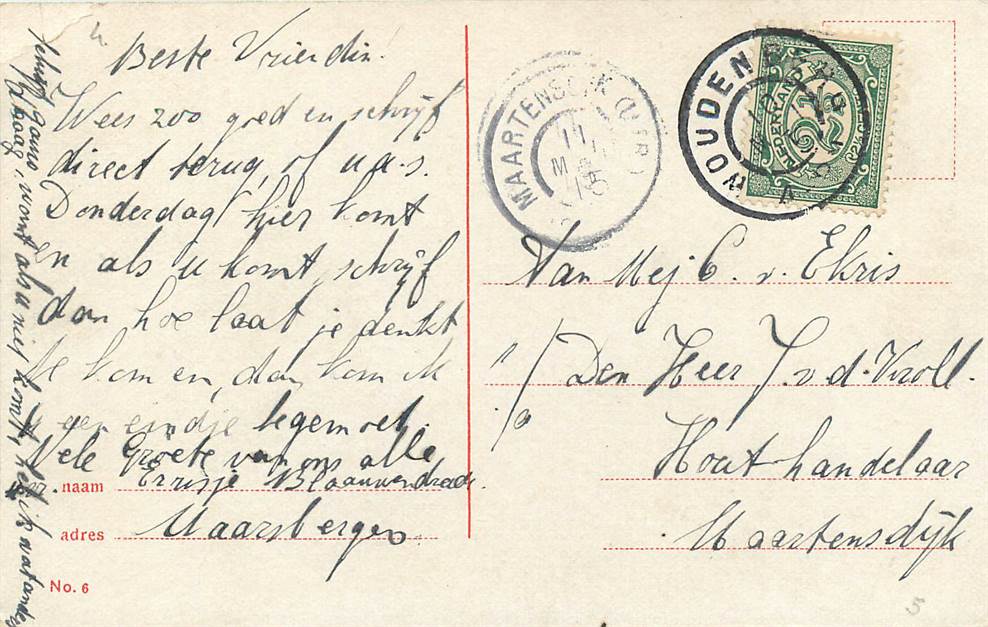 Beste Vriendin.
Wees zoo goed en schrijf
direct terug, of u a.s.
Donderdag hier komt
en als u komt, schrijf
dan hoe laat je denkt
te komen, dan kom ik
u een eindje tegemoet.
Vele Groete van ons alle,
Errisje Blaauwendraad.
naam
adres Maarsbergen
No. 6
schrijf gauw, want als u niet komt, heb ik wat anders
graag,
MAARTENSDIJK (UTR)
11
15
WOUDENBERG
NEDERLAND
2½
Aan Mej C. v. Ekris
p/a Den Heer J. v. d. Kroll.
Houthandelaar
Maartensdijk
5